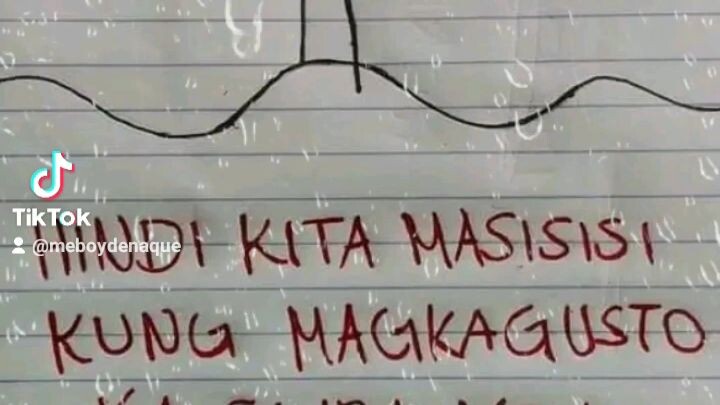 TikTok
@meboydenaque
HINDI KITA MASISISI
KUNG MAGKAGUSTO